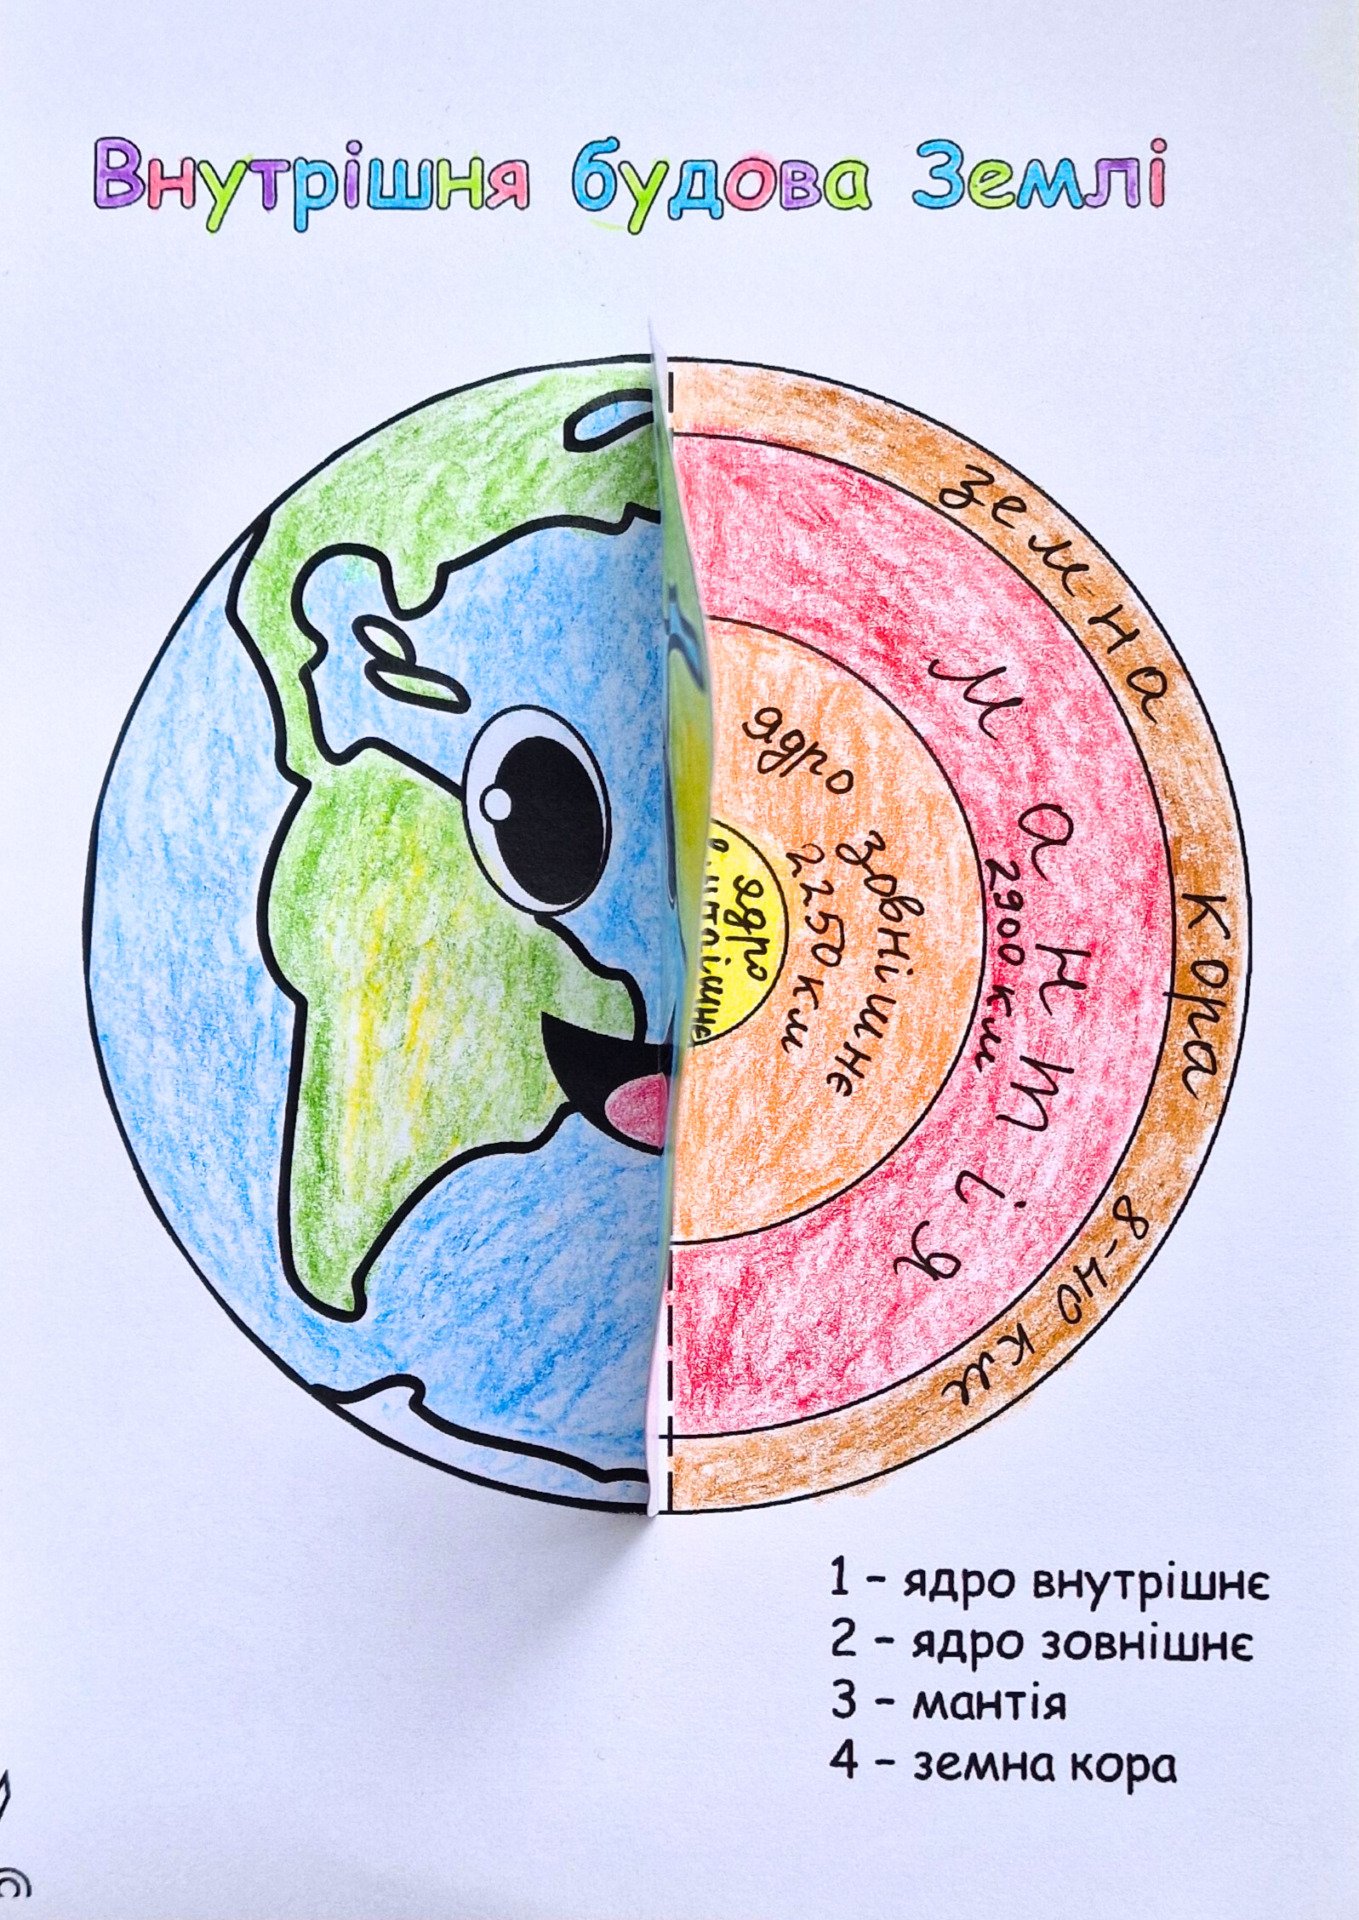 Внутрішня будова Землі
земна кора 8-40 км
мантія
2900 км
ядро зовнішне
2250 км
ядро
внутрішнє
1 - ядро внутрішнє
2 - ядро зовнішнє
3 - мантія
4 - земна кора